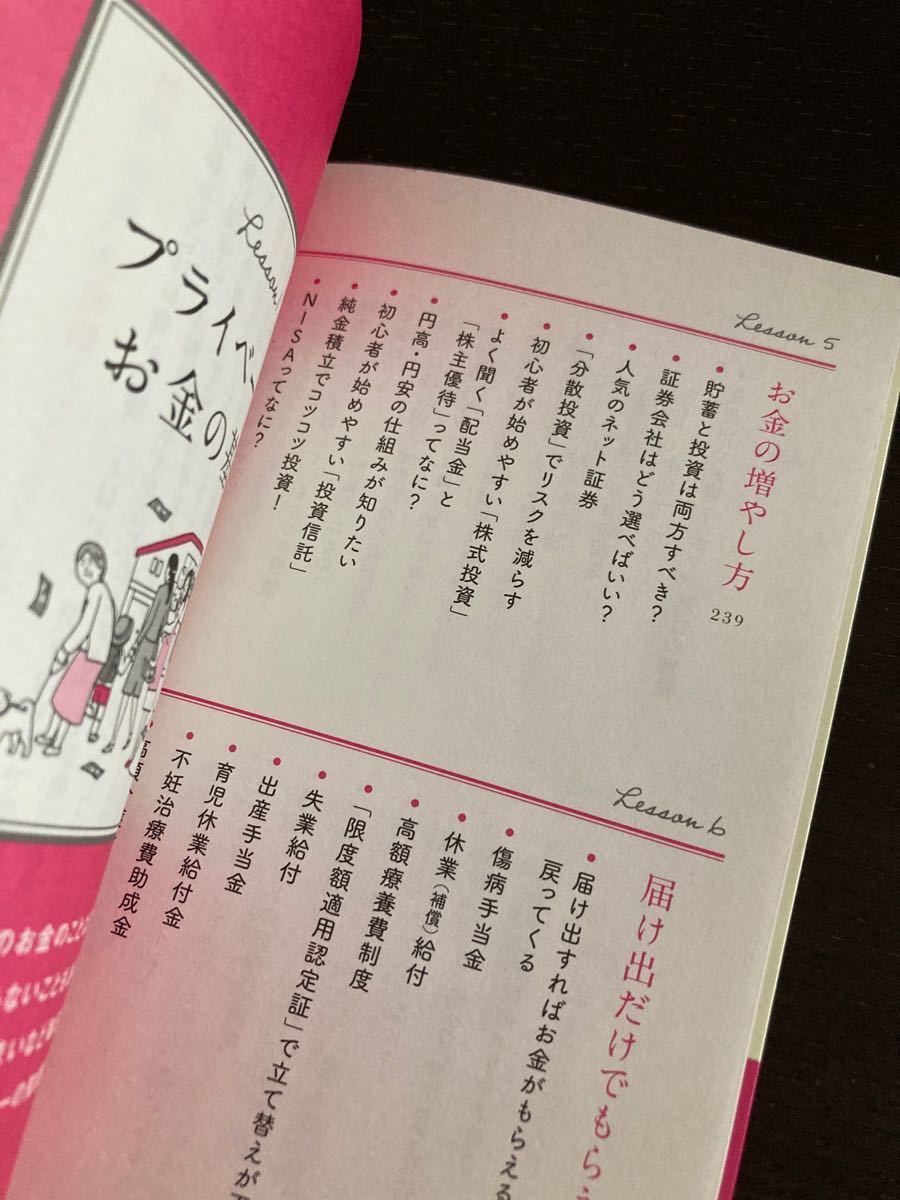 Lesson 5
お金の増やし方
239
・貯蓄と投資は両方すべき?
・証券会社はどう選べばいい?
・人気のネット証券
・「分散投資」でリスクを減らす
・初心者が始めやすい「株式投資」
・よく聞く「配当金」と
「株主優待」ってなに?
・円高・円安の仕組みが知りたい
・初心者が始めやすい「投資信託」
・純金積立でコツコツ投資!
・NISAってなに?
Lesson 6
届け出だけでもら
・届け出すればお金がもらえる
戻ってくる
・傷病手当金
・休業(補償)給付
・高額療養費制度
・「限度額適用認定証」で立て替えが
・失業給付
・出産手当金
・育児休業給付金
・不妊治療費助成金
Lesson
プライベ
お金の
のお金のこと
ないことも